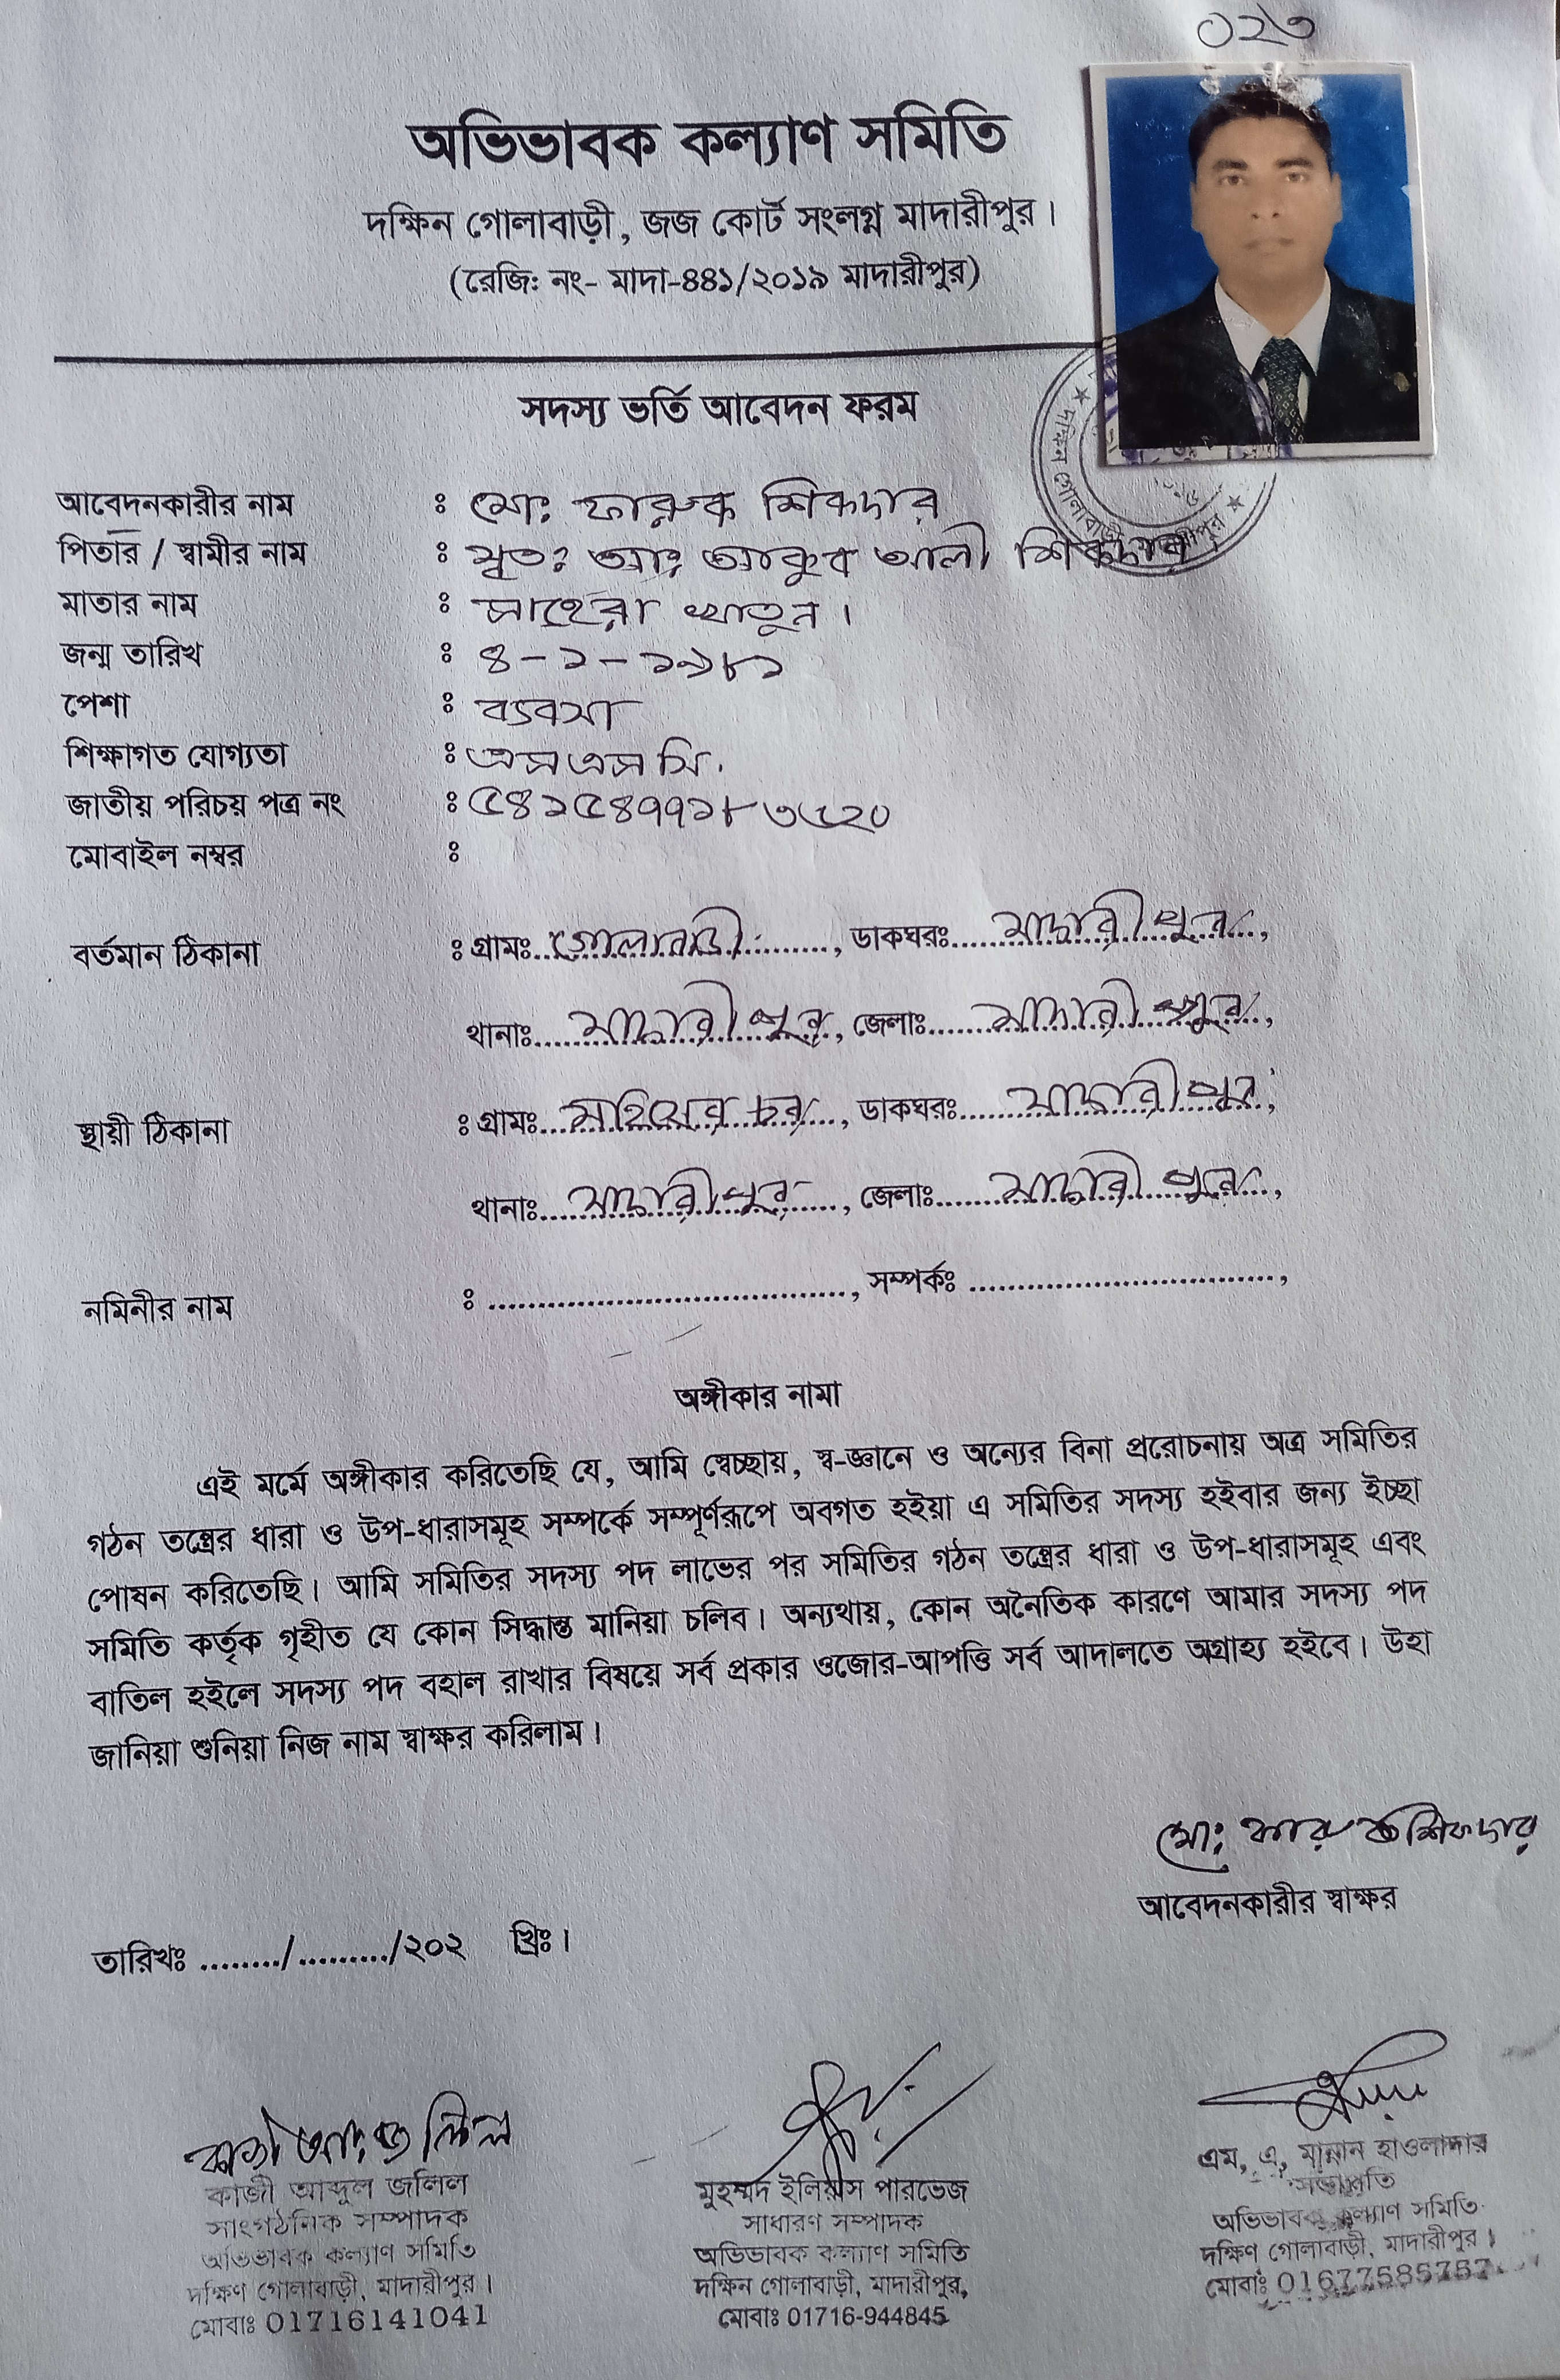 ০২৩
অভিভাবক কল্যাণ সমিতি
দক্ষিন গোলাবাড়ী, জজ কোর্ট সংলগ্ন মাদারীপুর।
(রেজি: নং- মাদা-৪৪১/২০১৯ মাদারীপুর)
সদস্য ভর্তি আবেদন ফরম
আবেদনকারীর নাম : মোঃ ফারুক শিকদার
পিতার / স্বামীর নাম : মৃতঃ আঃ আকুব আলী শিকদার
মাতার নাম : সাহেরা খাতুন।
জন্ম তারিখ : ৪-১-১৯৮১
পেশা : ব্যবসা
শিক্ষাগত যোগ্যতা : এসএসসি.
জাতীয় পরিচয় পত্র নং : ৫৪১৫৪৭৭১৮৩৫২০
মোবাইল নম্বর :
বর্তমান ঠিকানা : গ্রামঃ গোলাবাড়ী, ডাকঘরঃ মাদারীপুর,
থানাঃ মাদারীপুর, জেলাঃ মাদারীপুর,
স্থায়ী ঠিকানা : গ্রামঃ মহিষের চর, ডাকঘরঃ মাদারীপুর,
থানাঃ মাদারীপুর, জেলাঃ মাদারীপুর,
নমিনীর নাম : ...................................., সম্পর্কঃ ...............................,
অঙ্গীকার নামা
এই মর্মে অঙ্গীকার করিতেছি যে, আমি স্বেচ্ছায়, স্ব-জ্ঞানে ও অন্যের বিনা প্ররোচনায় অত্র সমিতির
গঠন তন্ত্রের ধারা ও উপ-ধারাসমূহ সম্পর্কে সম্পূর্ণরূপে অবগত হইয়া এ সমিতির সদস্য হইবার জন্য ইচ্ছা
পোষন করিতেছি। আমি সমিতির সদস্য পদ লাভের পর সমিতির গঠন তন্ত্রের ধারা ও উপ-ধারাসমূহ এবং
সমিতি কর্তৃক গৃহীত যে কোন সিদ্ধান্ত মানিয়া চলিব। অন্যথায়, কোন অনৈতিক কারণে আমার সদস্য পদ
বাতিল হইলে সদস্য পদ বহাল রাখার বিষয়ে সর্ব প্রকার ওজোর-আপত্তি সর্ব আদালতে অগ্রাহ্য হইবে। উহা
জানিয়া শুনিয়া নিজ নাম স্বাক্ষর করিলাম।
মোঃ ফারুক শিকদার
আবেদনকারীর স্বাক্ষর
তারিখঃ ......../........./২০২ খ্রিঃ।
কাজী আব্দুল জলিল
সাংগঠনিক সম্পাদক
অভিভাবক কল্যাণ সমিতি
দক্ষিণ গোলাবাড়ী, মাদারীপুর।
মোবাঃ 01716141041
মুহম্মদ ইলিয়াস পারভেজ
সাধারণ সম্পাদক
অভিভাবক কল্যাণ সমিতি
দক্ষিন গোলাবাড়ী, মাদারীপুর,
মোবাঃ 01716-944845
এম, এ, মান্নান হাওলাদার
সভাপতি
অভিভাবক কল্যাণ সমিতি
দক্ষিণ গোলাবাড়ী, মাদারীপুর।
মোবাঃ 01677585757